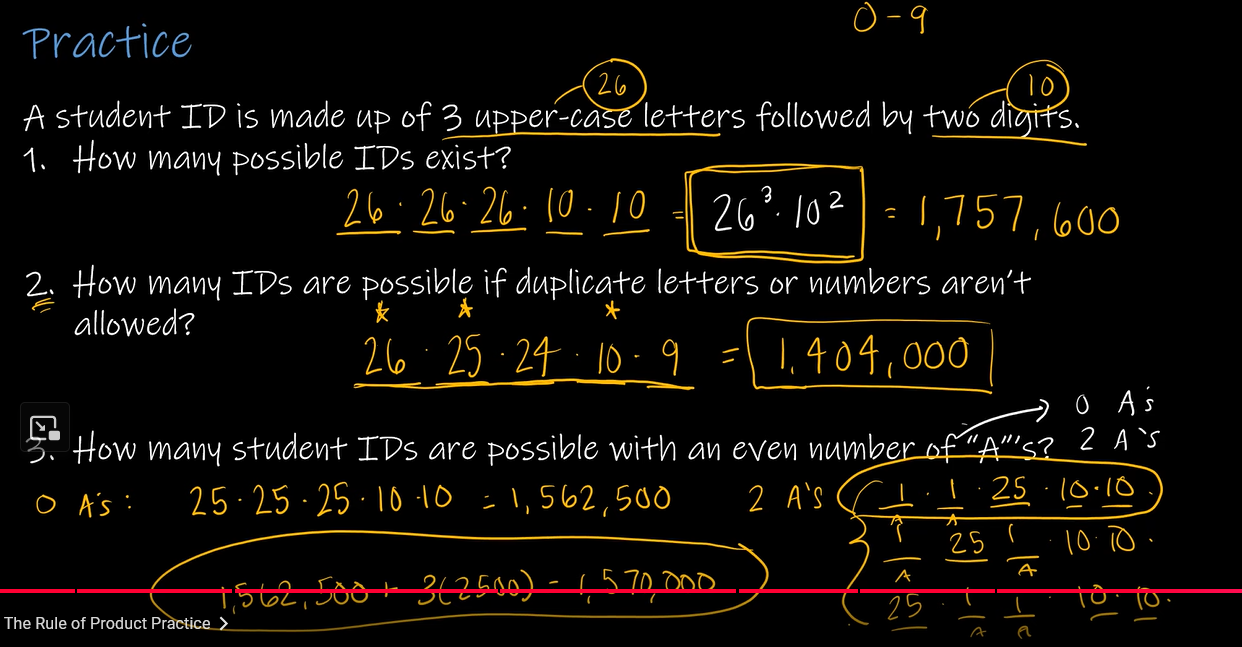 0 - 9
Practice
26
10
A student ID is made up of 3 upper-case letters followed by two digits.
1. How many possible IDs exist?
26 · 26 · 26 · 10 · 10 = 26³ · 10² = 1,757,600
2. How many IDs are possible if duplicate letters or numbers aren't
allowed?
26 · 25 · 24 · 10 · 9 = 1,404,000
0 A's
2 A's
3. How many student IDs are possible with an even number of "A"'s?
0 A's: 25 · 25 · 25 · 10 · 10 = 1,562,500
2 A's 1 · 1 · 25 · 10 · 10 ·
A A
1 25 1 · 10 · 10 ·
A A
1,562,500 + 3(2500) = 1,570,000
25 · 1 1 10 · 10 ·
A A
The Rule of Product Practice